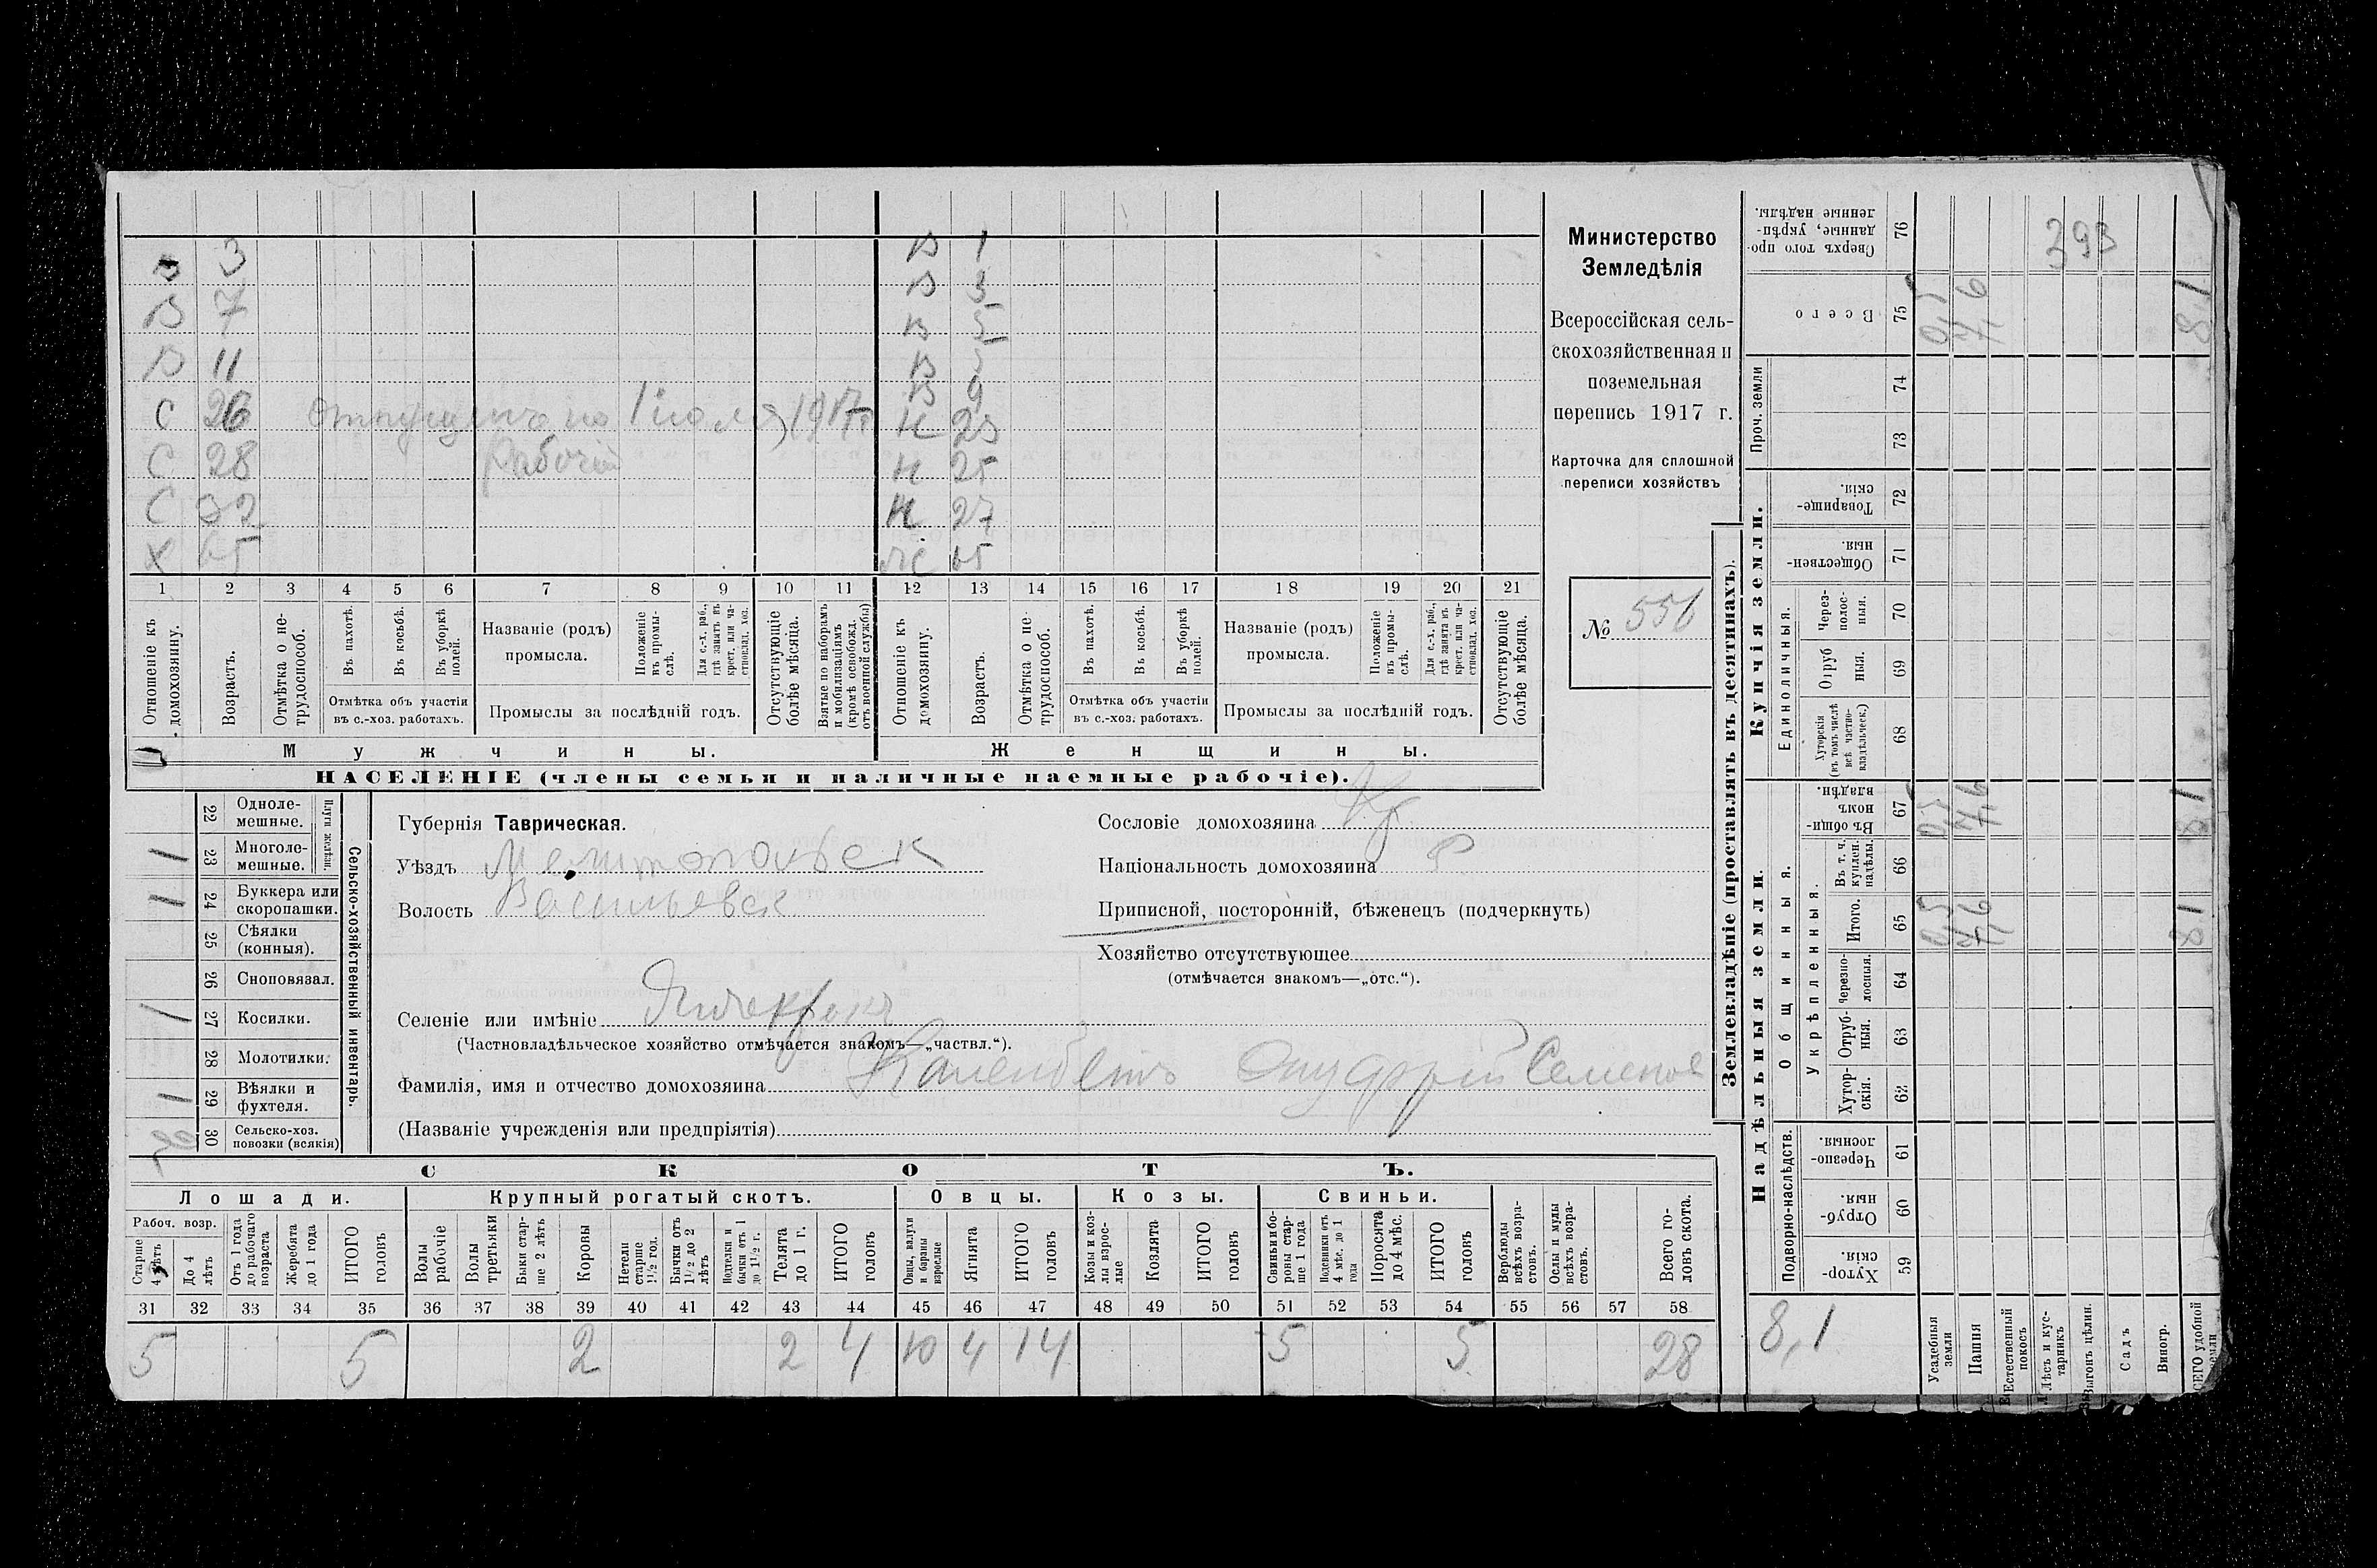 в 3 в 1
в 7 в 3
в 11 в 5
в
в 9
с 26 отпущенъ по 1 іюля 1917 г. н 23
с 28 Рабочій н 25
с 32 н 27
х 65 ж 65
1 2 3 4 5 6 7 8 9 10 11 12 13 14 15 16 17 18 19 20 21
Отношеніе къ домохозяину.
Возрастъ.
Отмѣтка о нетрудоспособ.
Въ пахотѣ.
Въ косьбѣ.
Въ уборкѣ полей.
Отмѣтка объ участіи
въ с.-хоз. работахъ.
Названіе (родъ)
промысла.
Положеніе въ промыслѣ.
Для с.-х. раб., гдѣ занятъ въ крест. или частновлад. хоз.
Промыслы за послѣдній годъ.
Отсутствующіе болѣе мѣсяца.
Взятые по наборамъ и мобилизаціямъ (кромѣ освобожд. отъ военной службы)
Отношеніе къ домохозяину.
Возрастъ.
Отмѣтка о нетрудоспособ.
Въ пахотѣ.
Въ косьбѣ.
Въ уборкѣ полей.
Отмѣтка объ участіи
въ с.-хоз. работахъ.
Названіе (родъ)
промысла.
Положеніе въ промыслѣ.
Для с.-х. раб., гдѣ занята въ крест. или частновлад. хоз.
Промыслы за послѣдній годъ.
Отсутствующіе болѣе мѣсяца.
Мужчины. Женщины.
НАСЕЛЕНІЕ (члены семьи и наличные наемные рабочіе).
Министерство
Земледѣлія
Всероссійская сель-
скохозяйственная и
поземельная
перепись 1917 г.
Карточка для сплошной
переписи хозяйствъ
№ 556
Сельско-хозяйственный инвентарь.
Плуги желѣзн.
22 Одноле-
мешные.
1 23 Многоле-
мешные.
11 24 Буккера или
скоропашки.
25 Сѣялки
(конныя).
26 Сноповязал.
1 27 Косилки.
28 Молотилки.
1 29 Вѣялки и
фухтеля.
30 Сельско-хоз.
повозки (всякія)
Губернія Таврическая.
Уѣздъ Мелитопольск
Волость Васильевск
Селеніе или имѣніе
(Частновладѣльческое хозяйство отмѣчается знакомъ—„частвл.“).
Фамилія, имя и отчество домохозяина Онуфрій Семенов
(Названіе учрежденія или предпріятія)
Сословіе домохозяина Кр.
Національность домохозяина Р
Приписной, посторонній, бѣженецъ (подчеркнуть)
Хозяйство отсутствующее
(отмѣчается знакомъ—„отс.“).
СКОТЪ.
Лошади. Крупный рогатый скотъ. Овцы. Козы. Свиньи.
Рабоч. возр.
Старше 4 лѣтъ
До 4 лѣтъ
Отъ 1 года до рабочаго возраста
Жеребята до 1 года
ИТОГО головъ
Волы рабочіе
Волы третьяки
Быки старше 2 лѣтъ
Коровы
Нетели старше 1½ год.
Бычки отъ 1½ до 2 лѣтъ
Подтелки и бычки отъ 1 до 1½ г.
Телята до 1 г.
ИТОГО головъ
Овцы, валухи и бараны взрослые
Ягнята
ИТОГО головъ
Козы и козлы взрослые
Козлята
ИТОГО головъ
Свиньи и боровы старше 1 года
Подсвинки отъ 4 мѣс. до 1 года
Поросята до 4 мѣс.
ИТОГО головъ
Верблюды всѣхъ возрастовъ.
Ослы и мулы всѣхъ возрастовъ.
Всего головъ скота.
31 32 33 34 35 36 37 38 39 40 41 42 43 44 45 46 47 48 49 50 51 52 53 54 55 56 57 58
5 5 2 2 4 10 4 14 5 5 28
Землевладѣніе (проставлять въ десятинахъ).
Купчія земли.
Надѣльныя земли.
Сверхъ того проданные, укрѣпленные надѣлы. 76 393
Всего 75 0,5 7,6 8,1
Проч. земли
74
73
Товарищескія. 72
Общественныя 71
Единоличныя.
Черезполосныя. 70
Отрубныя. 69
Хуторскія (въ томъ числѣ всѣ частновладѣльческ.) 68
Общинныя.
Въ общинномъ владѣн. 67 0,5 7,6 8,1
Укрѣпленныя.
Въ т. ч. куплен. надѣлы. 66
Итого. 65 0,5 7,6 8,1
Черезполосныя. 64
Отрубныя. 63
Хуторскія. 62
Подворно-наслѣдств.
Черезполосныя. 61
Отрубныя. 60
Хуторскія. 59
8,1
Усадебныя земли
Пашня
Естественный покосъ
Лѣсъ и кустарникъ
Выгонъ цѣлин.
Садъ
Виногр.
ВСЕГО удобной земли